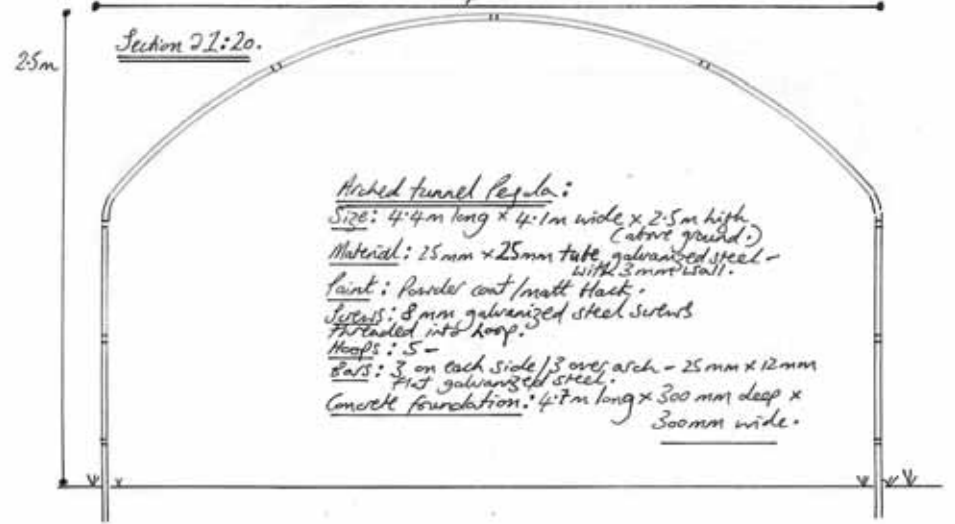 2.5m
Section 21:20.
Arched tunnel Pegola:
Size: 4.4m long × 4.1m wide × 2.5m high
(above ground.)
Material: 25mm × 25mm tube galvanized steel –
with 3mm wall.
Paint: Powder coat/matt black.
Screws: 8mm galvanized steel screws
threaded into hoop.
Hoops: 5 –
Bars: 3 on each side/3 over arch – 25mm × 12mm
Flat galvanized steel.
Concrete foundation: 4.7m long × 300mm deep ×
300mm wide.